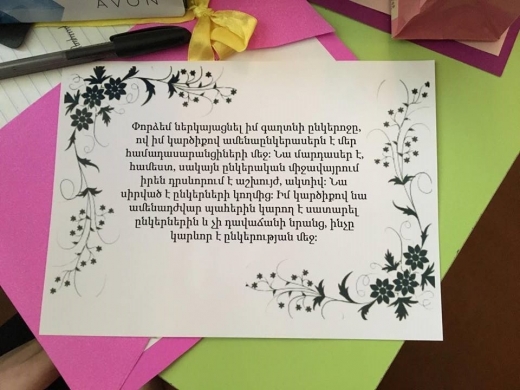 AVON
Փորձեմ ներկայացնել իմ գաղտնի ընկերոջը,
ով իմ կարծիքով ամենաընկերասերն է մեր
համադասարանցիների մեջ։ Նա մարդասեր է,
համեստ, սակայն ընկերական միջավայրում
իրեն դրսևորում է աշխույժ, ակտիվ։ Նա
սիրված է ընկերների կողմից։ Իմ կարծիքով նա
ամենադժվար պահերին կարող է սատարել
ընկերներին և չի դավաճանի նրանց, ինչը
կարևոր է ընկերության մեջ։